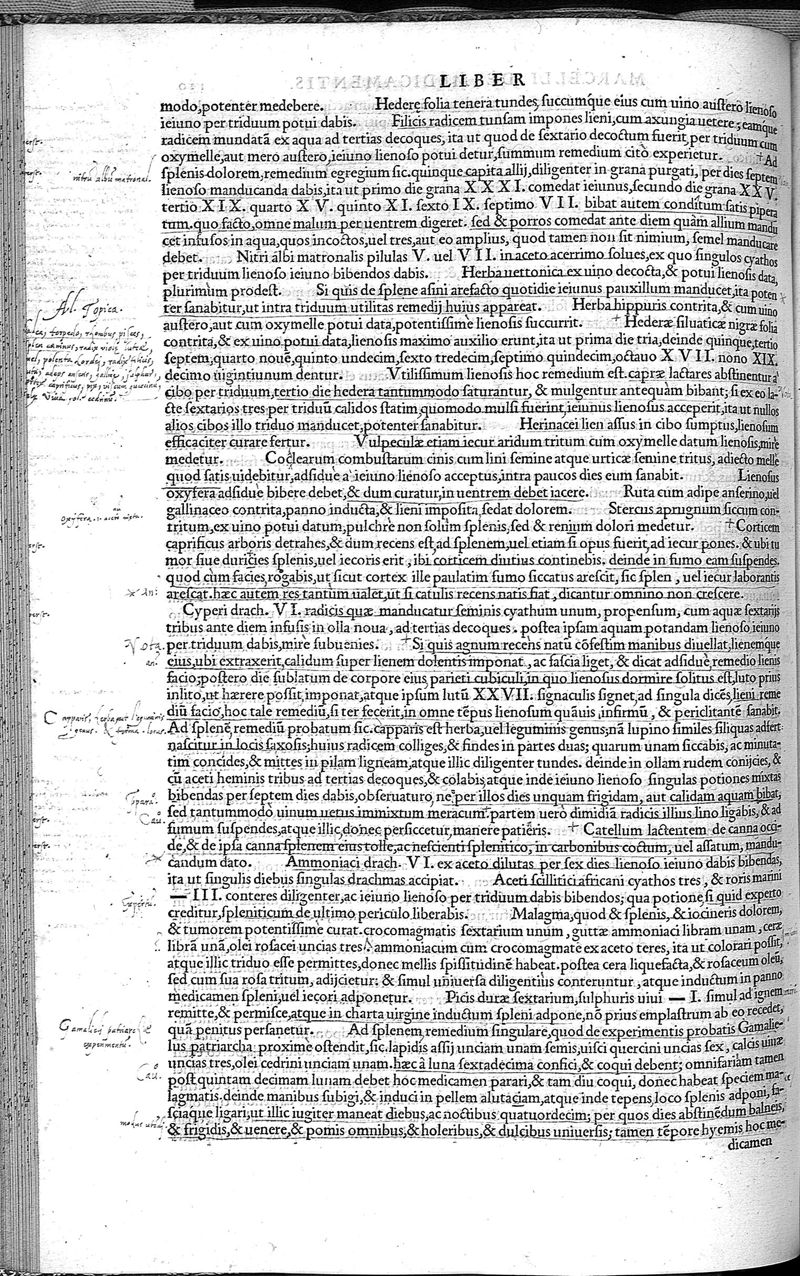 LIBER
modo, potenter medebere. Hederę folia tenera tundes, succumq́ue eius cum uino austero lienoso
ieiuno per triduum potui dabis. Filicis radicem tunsam impones lieni, cum axungia uetere; eamque
radicem mundatā ex aqua ad tertias decoques, ita ut quod de sextario decoctum fuerit, per triduum cum
oxymelle, aut mero austero, ieiuno lienoso potui detur, summum remedium citò experietur. + Ad
splenis dolorem, remedium egregium sic. quinque capita allij, diligenter in grana purgati, per dies septem
lienoso manducanda dabis, ita ut primo die grana XXXI. comedat ieiunus, secundo die grana XXV.
tertio XIX. quarto XV. quinto XI. sexto IX. septimo VII. bibat autem conditum satis pipera
tum. quo facto, omne malum per uentrem digeret. sed & porros comedat ante diem quàm allium mandu
cet infusos in aqua, quos incoctos, uel tres, aut eo amplius, quod tamen non sit nimium, semel manducare
debet. Nitri albi matronalis pilulas V. uel VII. in aceto acerrimo solues, ex quo singulos cyathos
per triduum lienoso ieiuno bibendos dabis. Herba uettonica ex uino decocta, & potui lienosis data,
plurimùm prodest. Si quis de splene asini arefacto quotidie ieiunus pauxillum manducet, ita poten
ter sanabitur, ut intra triduum utilitas remedij huius appareat. Herba hippuris contrita, & cum uino
austero, aut cum oxymelle potui data, potentissimè lienosis succurrit. + Hederæ siluaticæ nigræ folia
contrita, & ex uino potui data, lienosis maximo auxilio erunt, ita ut prima die tria, deinde quinque, tertio
septem, quarto nouē, quinto undecim, sexto tredecim, septimo quindecim, octauo XVII. nono XIX.
decimo uigintiunum dentur. Vtilissimum lienosis hoc remedium est. capræ lactares abstinentur à
cibo per triduum, tertio die hedera tantummodo saturantur, & mulgentur antequàm bibant; si ex eo la-
cte sextarios tres per triduū calidos statim, quomodo mulsi fuerint, ieiunus lienosus acceperit, ita ut nullos
alios cibos illo triduo manducet, potenter sanabitur. Herinacei lien assus in cibo sumptus, lienosum
efficaciter curare fertur. Vulpeculæ etiam iecur aridum tritum cum oxymelle datum lienosis, mirè
medetur. Coclearum combustarum cinis cum lini semine atque urticæ semine tritus, adiecto melle
quod satis uidebitur, adsiduè à ieiuno lienoso acceptus, intra paucos dies eum sanabit. Lienosus
oxyfera adsiduè bibere debet, & dum curatur, in uentrem debet iacere. Ruta cum adipe anserino, uel
gallinaceo contrita, panno inducta, & lieni imposita, sedat dolorem. Stercus aprugnum siccum con-
tritum, ex uino potui datum, pulchrè non solùm splenis, sed & renium dolori medetur. + Corticem
caprificus arboris detrahes, & dum recens est, ad splenem, uel etiam si opus fuerit, ad iecur pones. & ubi tu
mor siue durities splenis, uel iecoris erit, ibi corticem diutius continebis. deinde in fumo eam suspendes.
quod cùm facies, rogabis, ut sicut cortex ille paulatim fumo siccatus arescit, sic splen, uel iecur laborantis
arescat. hæc autem res tantum ualet, ut si catulis recens natis fiat, dicantur omnino non crescere.
Cyperi drach. VI. radicis quæ manducatur seminis cyathum unum, propensum, cum aquæ sextarijs
tribus ante diem infusis in olla noua, ad tertias decoques. postea ipsam aquam potandam lienoso ieiuno
per triduum dabis, mirè subuenies. + Si quis agnum recens natū cōfestim manibus diuellat, lienemque
eius, ubi extraxerit, calidum super lienem dolentis imponat, ac fascia liget, & dicat adsiduè, remedio lienis
facio; postero die sublatum de corpore eius, parieti cubiculi, in quo lienosus dormire solitus est, luto prius
inlito, ut hærere possit, imponat, atque ipsum lutū XXVII. signaculis signet, ad singula dicēs, lieni reme
diū facio, hoc tale remediū, si ter fecerit, in omne tēpus lienosum quāuis, infirmū, & periclitantē sanabit.
Ad splenē, remediū probatum sic. capparis est herba, uel leguminis genus; nā lupino similes siliquas adfert
nascitur in locis saxosis; huius radicem colliges, & findes in partes duas; quarum unam siccabis, ac minuta-
tim concides, & mittes in pilam ligneam, atque illic diligenter tundes. deinde in ollam rudem conijcies, &
cū aceti heminis tribus ad tertias decoques, & colabis, atque inde ieiuno lienoso singulas potiones mixtas
bibendas per septem dies dabis, obseruaturo, ne per illos dies unquam frigidam, aut calidam aquam bibat,
sed tantummodò uinum uetus immixtum meracum. partem uerò dimidiā radicis illius lino ligabis, & ad
fumum suspendes, atque illic, donec persiccetur, manere patiēris. + Catellum lactentem de canna occi-
de, & de ipsa canna splenem eius tolle, ac nescienti splenitico, in carbonibus coctum, uel assatum, mandu-
candum dato. Ammoniaci drach. VI. ex aceto dilutas per sex dies lienoso ieiuno dabis bibendas,
ita ut singulis diebus singulas drachmas accipiat. Aceti scillitici africani cyathos tres, & roris marini
— III. conteres diligenter, ac ieiuno lienoso per triduum dabis bibendos; qua potione, si quid experto
creditur, spleniticum de ultimo periculo liberabis. Malagma, quod & splenis, & iocineris dolorem,
& tumorem potentissimè curat. crocomagmatis sextarium unum, guttæ ammoniaci libram unam, ceræ
librā unā, olei rosacei uncias tres, ammoniacum cum crocomagmate ex aceto teres, ita ut colorari possit,
atque illic triduo esse permittes, donec mellis spissitudinē habeat. postea cera liquefacta, & rosaceum oleū,
sed cum sua rosa tritum, adijcietur: & simul uniuersa diligentius conteruntur, atque inductum in panno
medicamen spleni, uel iecori adponetur. Picis duræ sextarium, sulphuris uiui — I. simul ad ignem
remitte, & permisce, atque in charta uirgine inductum spleni adpone, nō prius emplastrum ab eo recedet,
quā penitus persanetur. Ad splenem remedium singulare, quod de experimentis probatis Gamalie-
lus patriarcha proximè ostendit, sic. lapidis assij unciam unam semis, uisci quercini uncias sex, calcis uiuæ
uncias tres, olei cedrini unciam unam. hæc à luna sextadecima confici, & coqui debent; omnifariàm tamen
post quintam decimam lunam debet hoc medicamen parari, & tam diu coqui, donec habeat speciem ma-
lagmatis. deinde manibus subigi, & induci in pellem alutaciam, atque inde tepens loco splenis adponi, fa-
sciaque ligari, ut illic iugiter maneat diebus, ac noctibus quatuordecim; per quos dies abstinēdum balneis,
& frigidis, & uenere, & pomis omnibus, & holeribus, & dulcibus uniuersis; tamen tēpore hyemis hoc me-
dicamen
nitrū albū matronal.
Al. Topica.
oxyfera
Nota
Capparis
Cau.
Gamalielj patriarchę
experimentū.
Cau.